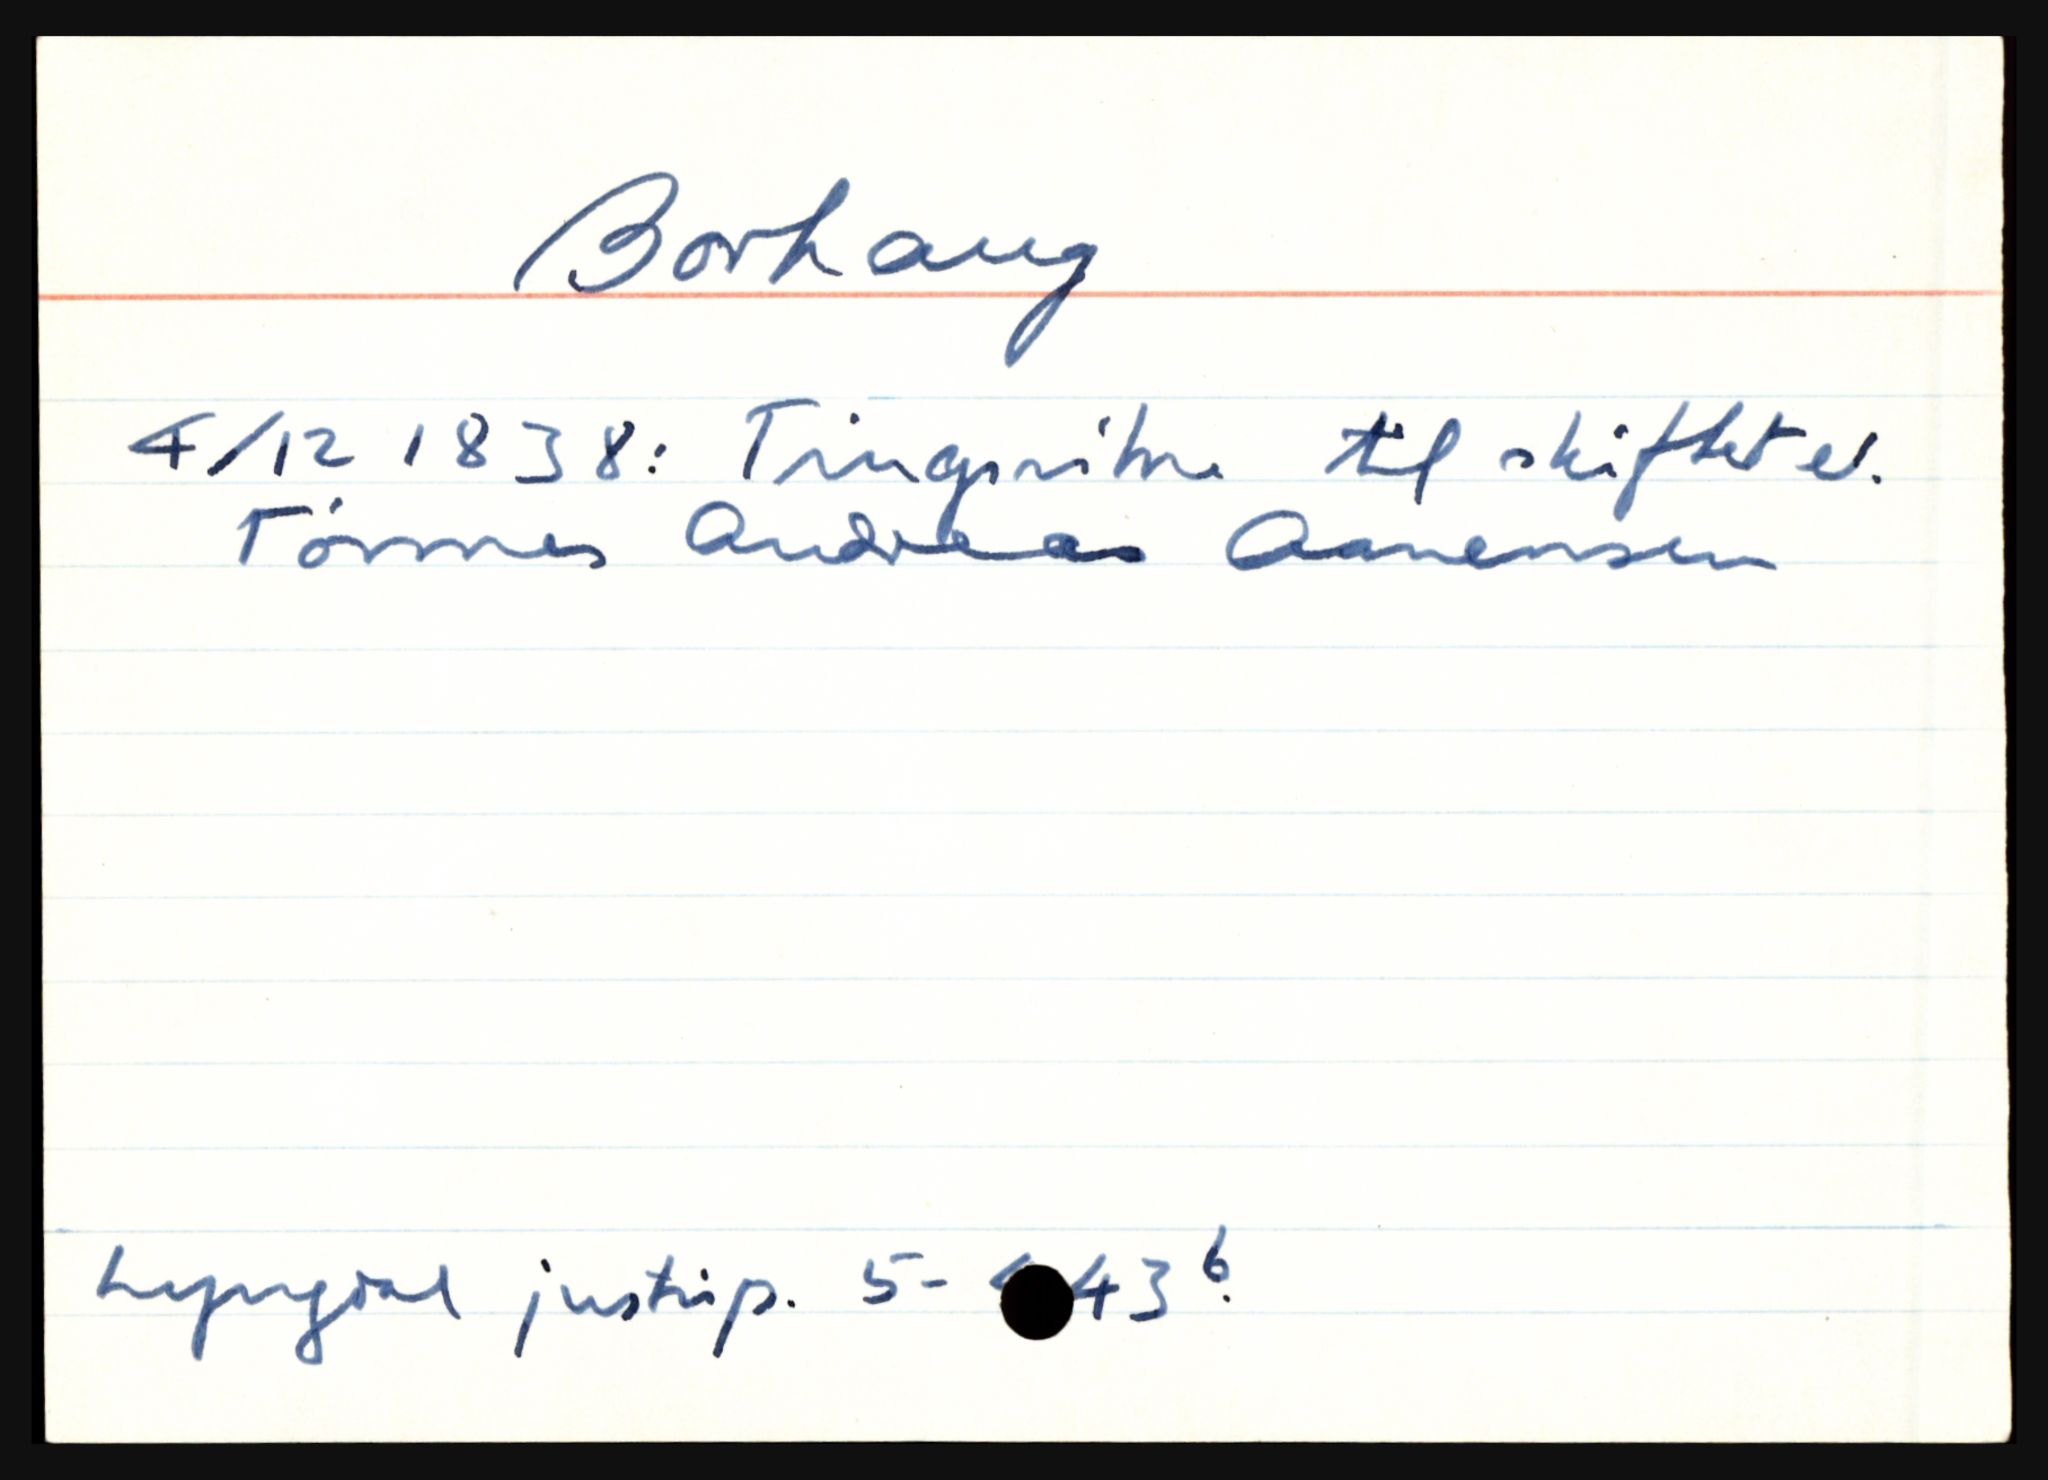 Borhaug
4/12 1838: Tingsvitne til skiftet e.
Tønnes Andreas Aanensen
Lyngdal justisp. 5- 43 6.